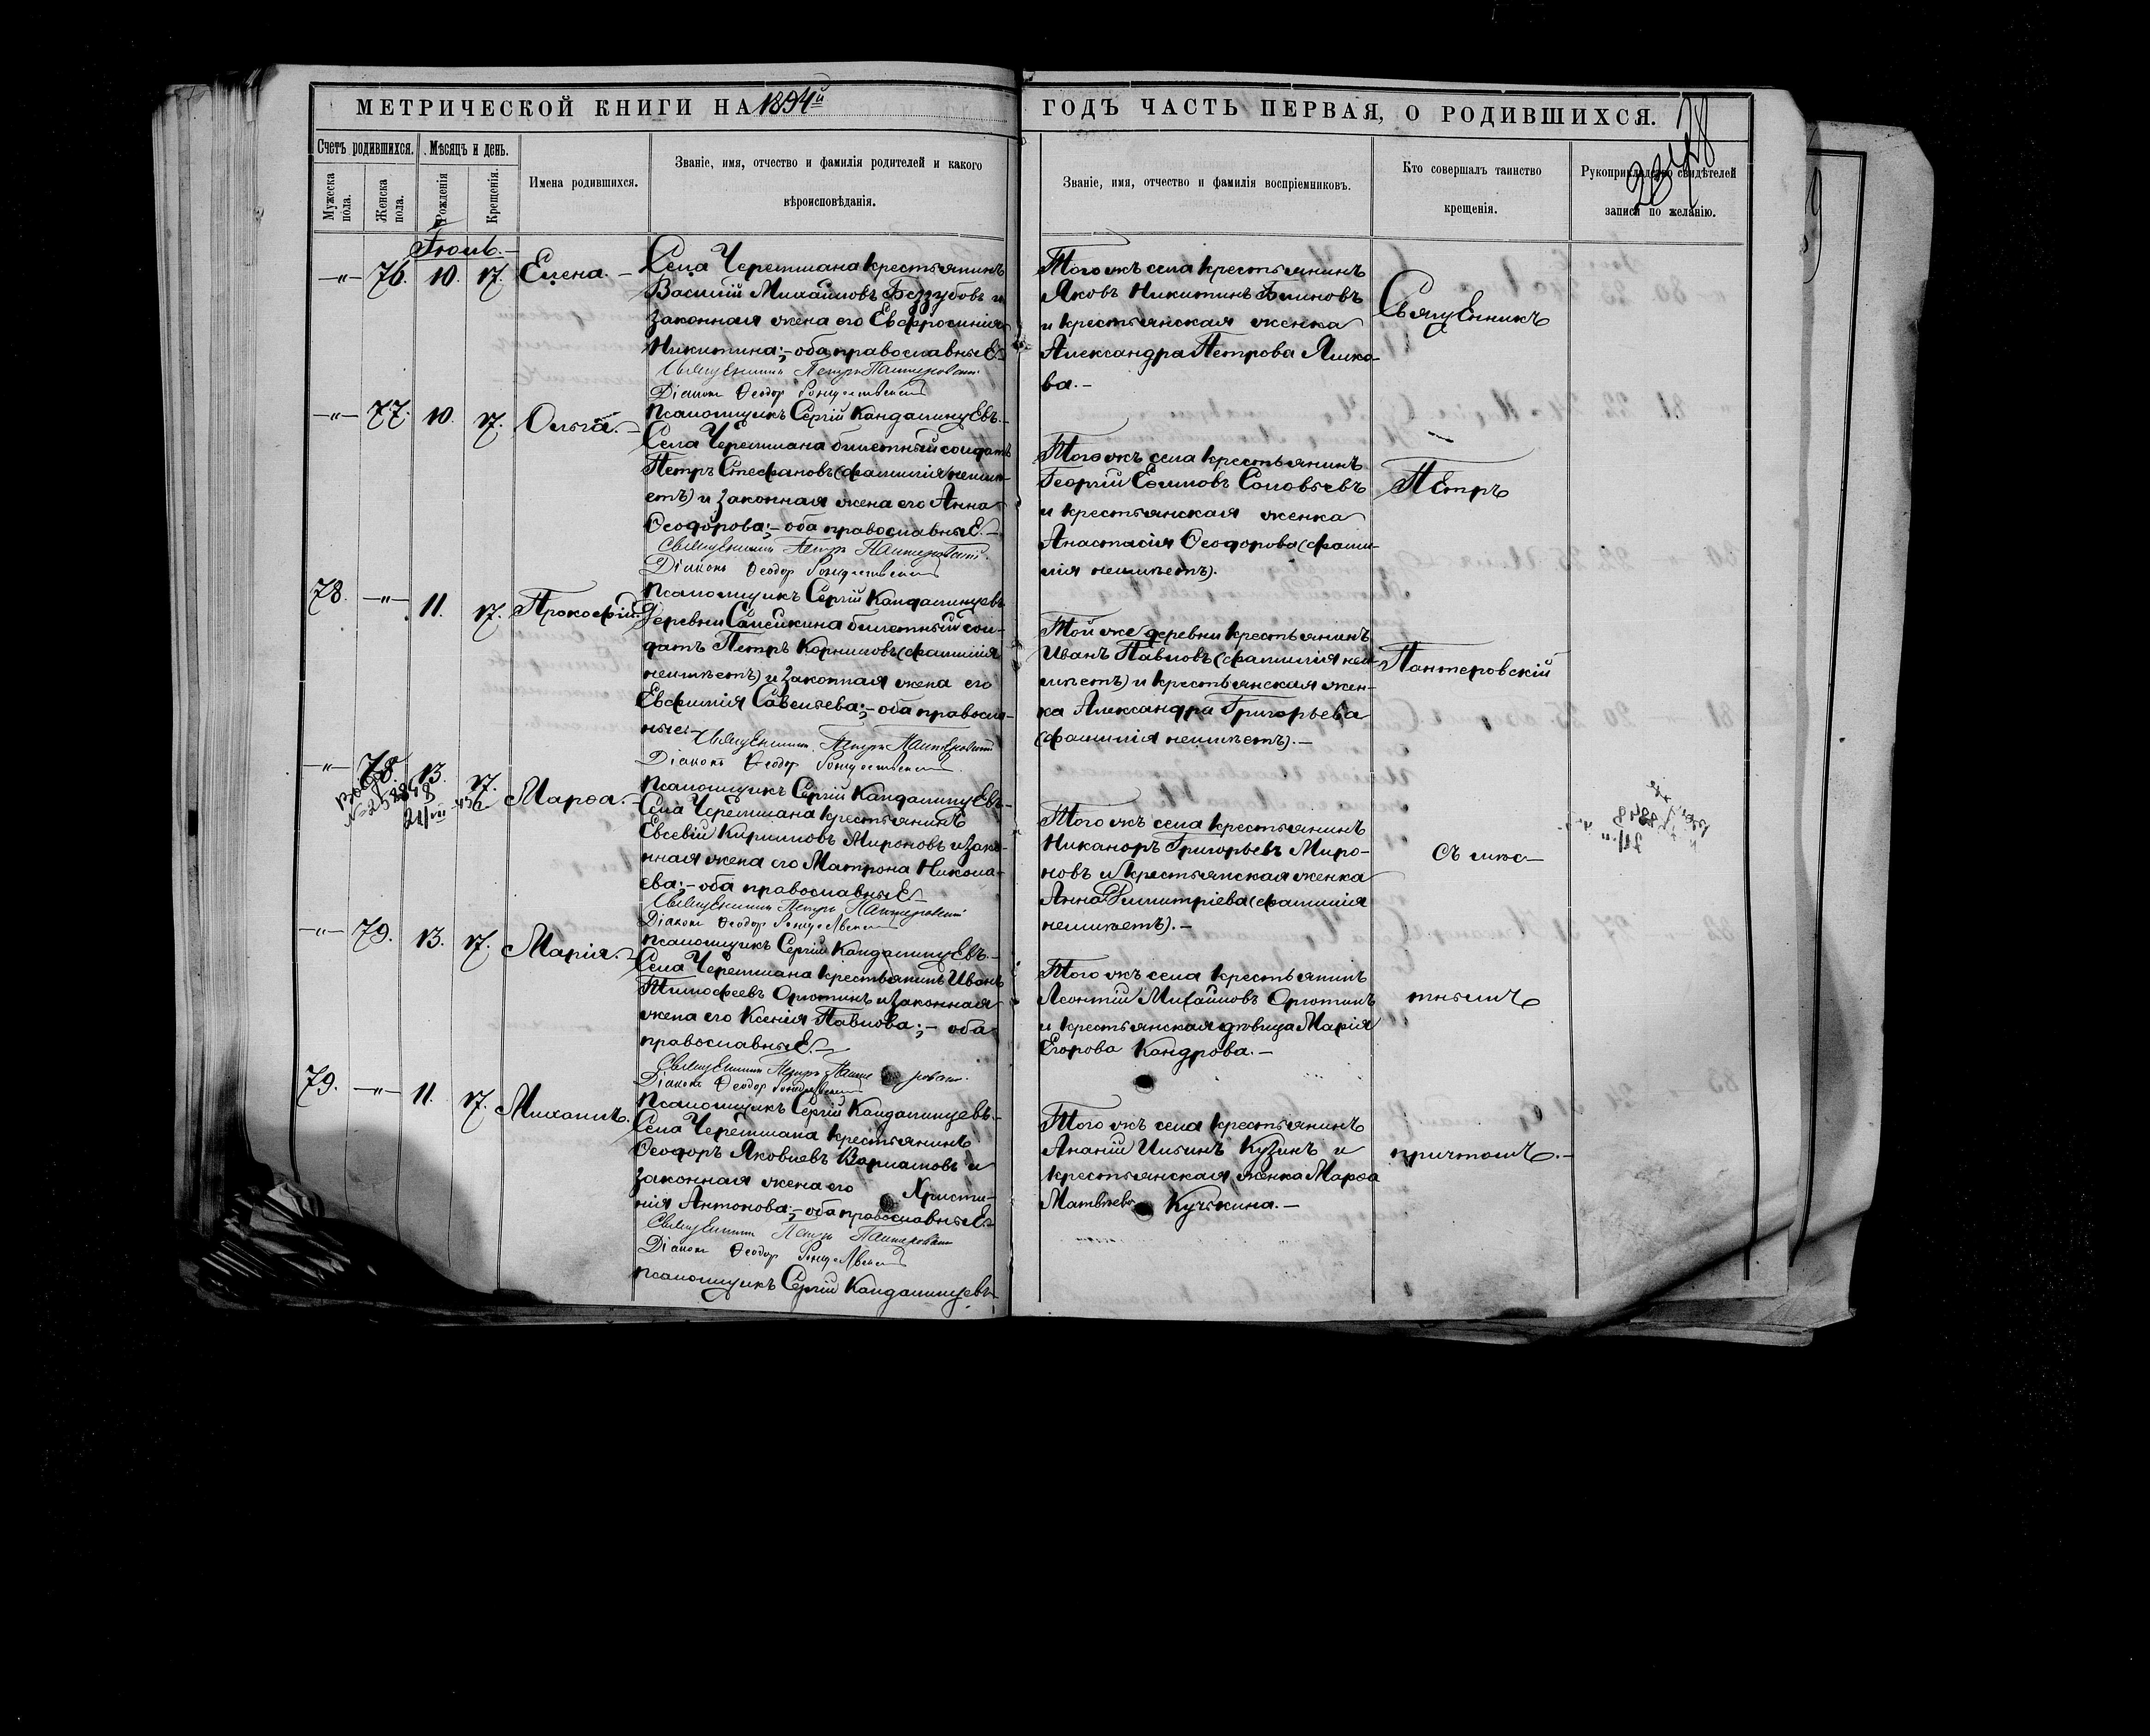 МЕТРИЧЕСКОЙ КНИГИ НА 1894й
ГОДЪ ЧАСТЬ ПЕРВАЯ, О РОДИВШИХСЯ.
Счетъ родившихся.
Мѣсяцъ и день.
Мужеска пола.
Женска пола.
Рожденія
Крещенія.
Имена родившихся.
Званіе, имя, отчество и фамилія родителей и какого
вѣроисповѣданія.
Званіе, имя, отчество и фамилія воспріемниковъ.
Кто совершалъ таинство
крещенія.
Рукоприкладство свидѣтелей
записи по желанію.
—„— 76. 10. 17. Елена.—
Села Черемшана крестьянинъ
Василій Михайловъ Беззубовъ и
законная жена его Евфросинія
Никитина;— оба православные.
Священникъ Петръ Пантеровскій
Діаконъ Ѳеодор Рождественскій
Псаломщикъ Сергій Кандалинцевъ.—
Того жъ села крестьянинъ
Яковъ Никитинъ Блиновъ
и крестьянская женка
Александра Петрова
ва.—
Священникъ
—„— 77. 10. 17. Ольга.—
Села Черемшана билетный солдатъ
Петръ Стефановъ (фамиліи неим-
етъ) и законная жена его Анна
Ѳеодорова;— оба православные.—
Священникъ Петръ Пантеровскій.
Діаконъ Ѳеодор Рождественскій
Псаломщикъ Сергій Кандалинцевъ
Того жъ села крестьянинъ
Георгій Соловьевъ
и крестьянская женка
Анастасія Ѳеодорова (фами-
лія неимѣетъ).
Петръ
78. —„— 11. 17. Прокофій.
Деревни билетный сол-
датъ Петръ Корниловъ (фамилія
неимѣетъ) и законная жена его
Евфимія Савельева;— оба правосла-
ные.— Священникъ Петръ Пантеровскій
Діаконъ Ѳеодор Рождественскій
Псаломщикъ Сергій Кандалинцевъ.—
Той же деревни крестьянинъ
Иванъ Павловъ (фамилія неи-
мѣетъ) и крестьянская жен-
ка Александра Григорьева
(фамилія неимѣетъ).—
Пантеровскій
—„— 78. 13. 17. Марѳа.—
Села Черемшана крестьянинъ
Евсевій Кирилловъ Мироновъ и зако-
нная жена его Матрона Никола-
ева;— оба православные
Священникъ Петръ Пантеровскій
Діаконъ Ѳеодор Рождественскій
Псаломщикъ Сергій Кандалинцевъ.—
Того жъ села крестьянинъ
Никаноръ Григорьевъ Миро-
новъ и крестьянская женка
Анна Димитріева (фамилія
неимѣетъ).—
съ мѣс—
—„— 79. 13. 17. Марія.—
Села Черемшана крестьянинъ Иванъ
Тимофеевъ и законная
жена его Ксенія Павлова;— оба
православные.—
Священникъ Петръ
Діаконъ Ѳеодор Рождественскій
Псаломщикъ Сергій Кандалинцевъ.—
Того жъ села крестьянинъ
Леонтій Михайловъ
и крестьянская дѣвица Марія
Егорова Кандрова.—
тнымъ
79. —„— 11. 17. Михаилъ.
Села Черемшана крестьянинъ
Ѳеодоръ Яковлевъ Варламовъ и
законная жена его Христи-
нія Антонова;— оба православные.
Священникъ Петръ Пантеровскій
Діаконъ Ѳеодор Рождественскій
Псаломщикъ Сергій Кандалинцевъ
Того жъ села крестьянинъ
Ананій Ильинъ Кузинъ и
крестьянская женка Марѳа
Матвѣева Кучкина.—
причтомъ.—